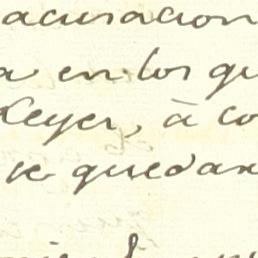 acusacion
a en los qu
Leyes, à co
se quedan